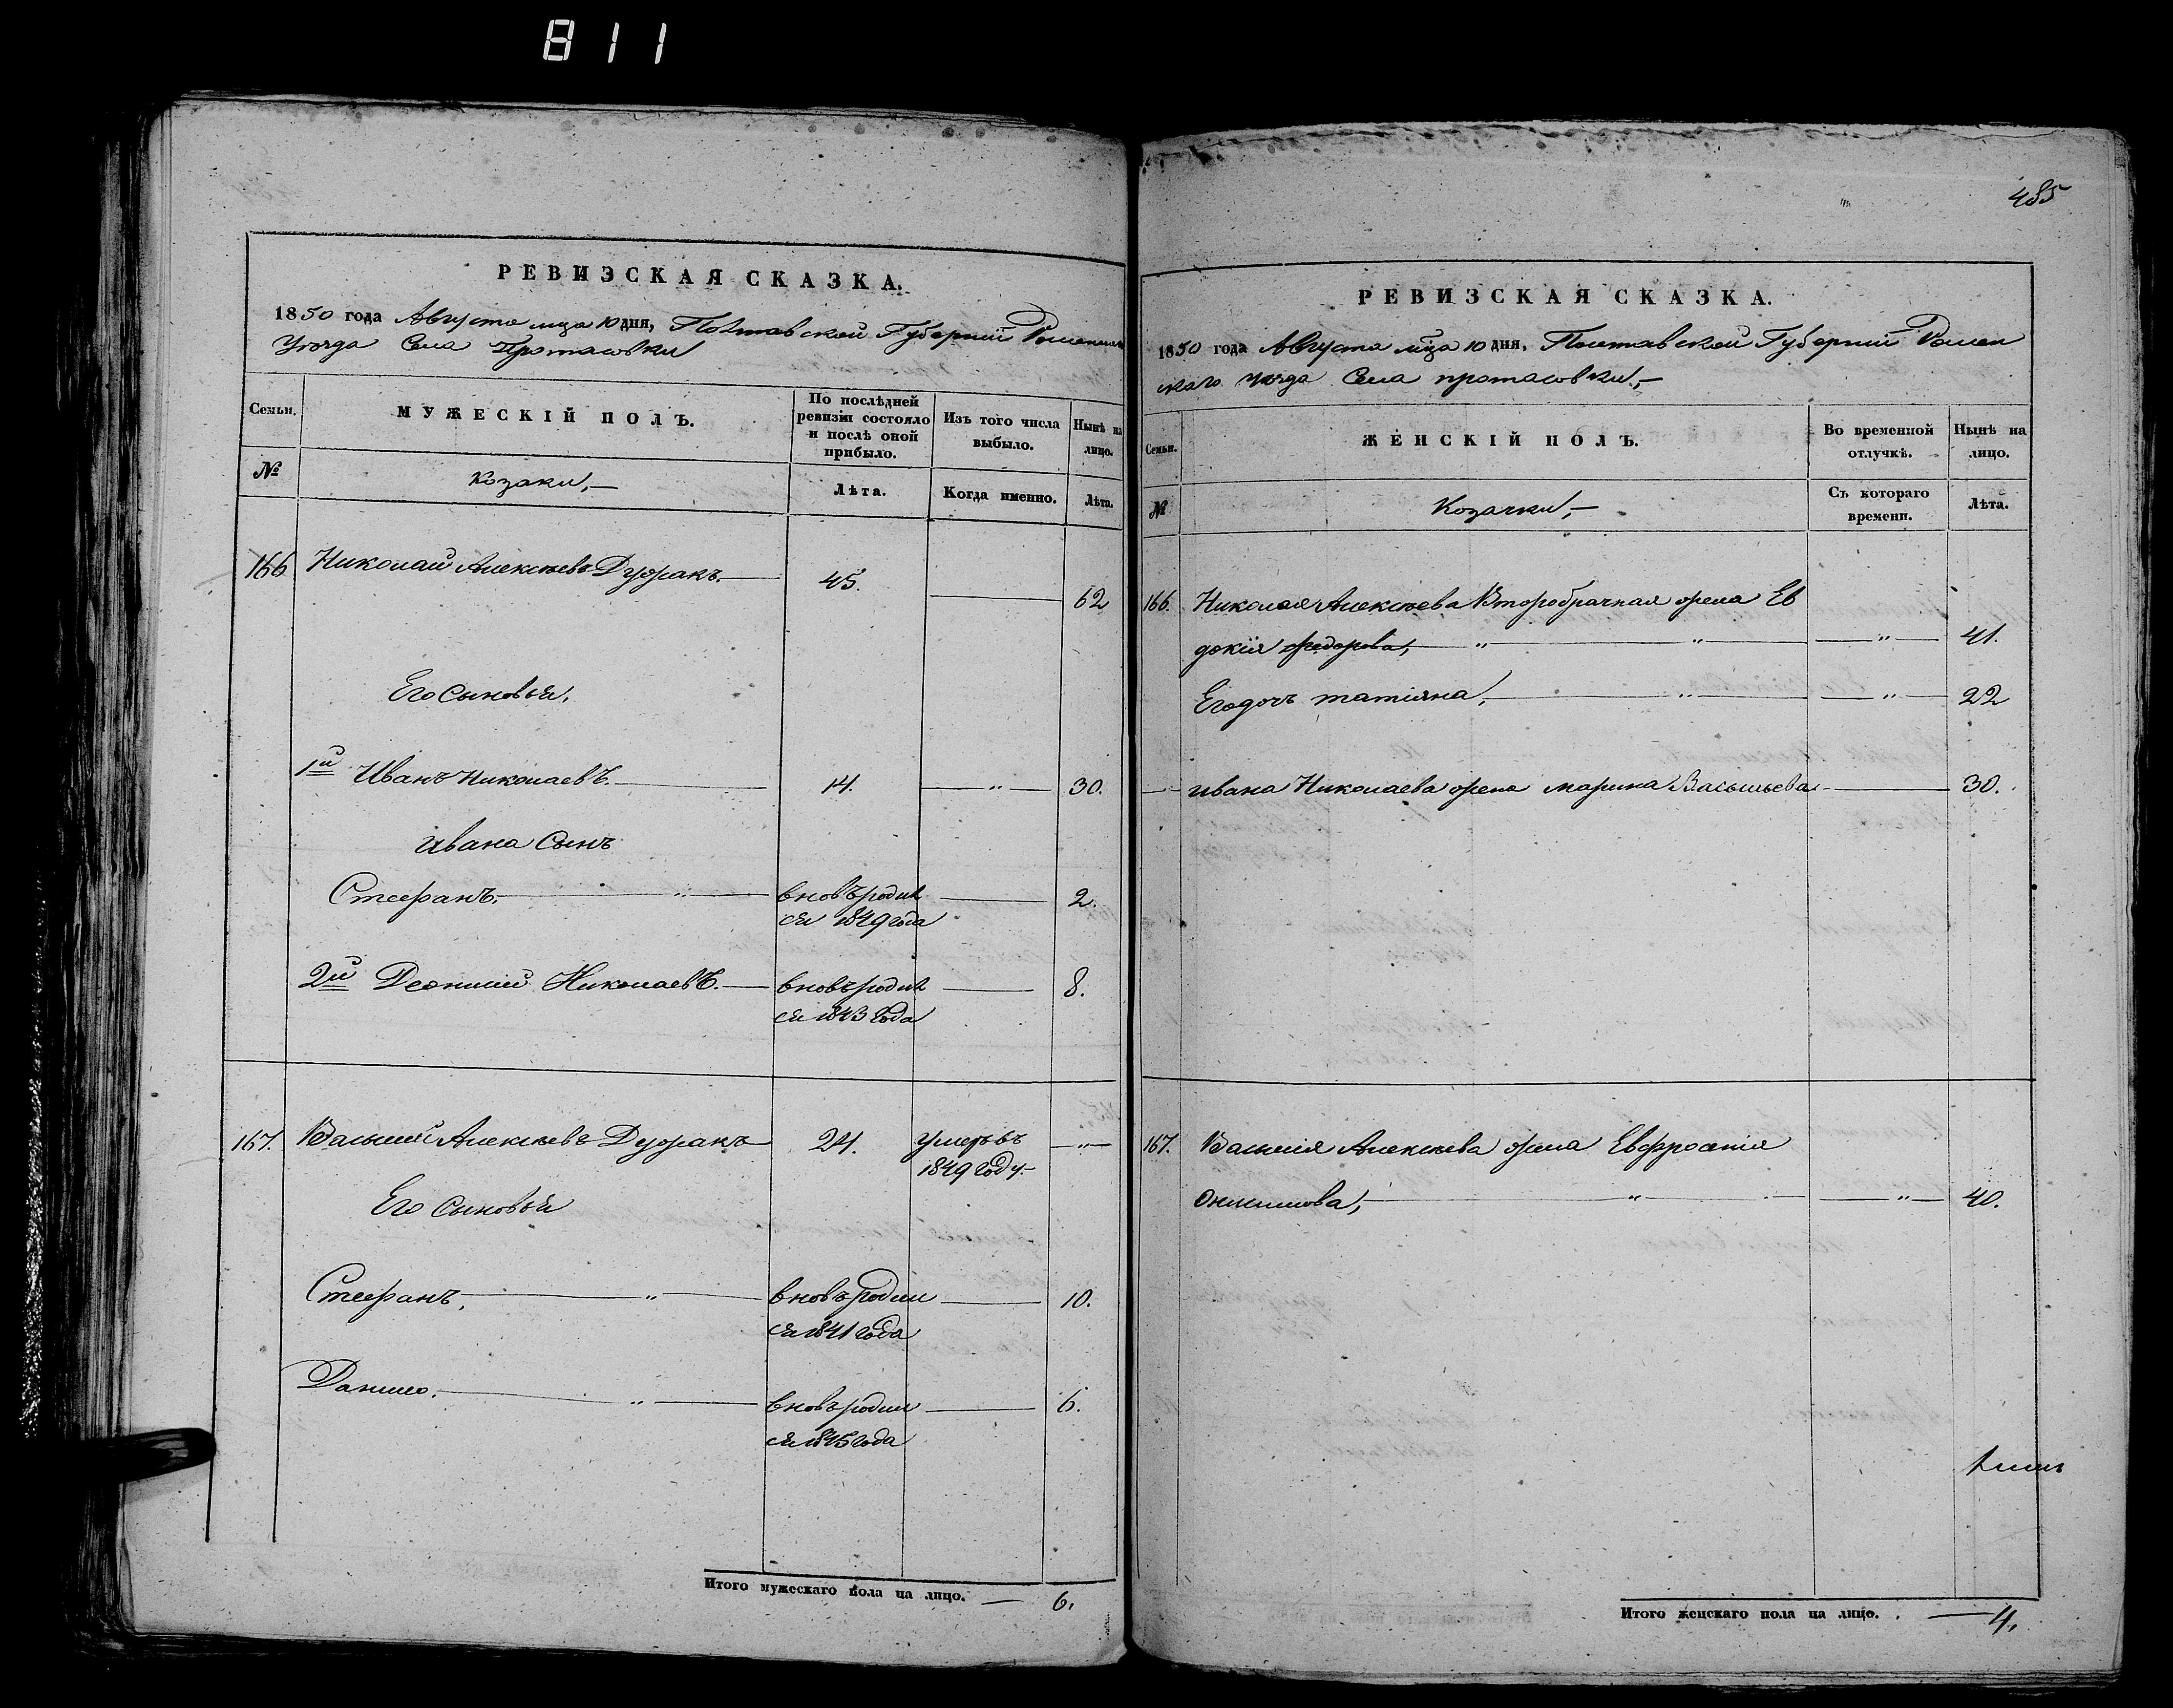 811
РЕВИЗСКАЯ СКАЗКА.
1850 года Августа мца 10 дня, Полтавской Губернии Роменскаго
Уезда Села Протасовки
Семьи.
МУЖЕСКІЙ ПОЛЪ.
По послѣдней ревизіи состояло и послѣ оной прибыло.
Изъ того числа выбыло.
Нынѣ на лицо.
№
Козаки,—
Лѣта.
Когда именно.
Лѣта.
166 Николай Алексѣевъ Дудракъ.— 45. — 62
Его сыновья.
1й Иванъ Николаевъ.— 14. —"— 30.
Ивана Сынъ
Стефанъ.—"— вновь родил — 2.
ся 1849 года
2й Деонисий Николаевъ.— вновь родил — 8.
ся 1843 года
167. Василий Алексѣевъ — 24. умеръ въ —"—
1849 году.—
Его сыновья
Стефанъ,—"— вновь родил — 10.
ся 1841 года
Данило.—"— вновь родил — 6.
ся 1845 года
Итого мужескаго пола на лицо. — 6.
485
РЕВИЗСКАЯ СКАЗКА.
1850 года Августа мца 10 дня, Полтавской Губернии Ромен
скаго Уезда Села протасовки.—
Семьи.
ЖЕНСКІЙ ПОЛЪ.
Во временной отлучкѣ.
Нынѣ на лицо.
№
Козачки,—
Съ котораго времени.
Лѣта.
166. Николая Алексѣева Второбрачная жена Ев
докия федорова,—"—"— —"— 41.
Его дочь татияна,—"— —"— 22
— ивана Николаева жена марина Васильева — 30.
167. Василия Алексѣева жена Евфросиния
Онисимова,—"— —"— 40.
Итого женскаго пола на лицо. — 4.